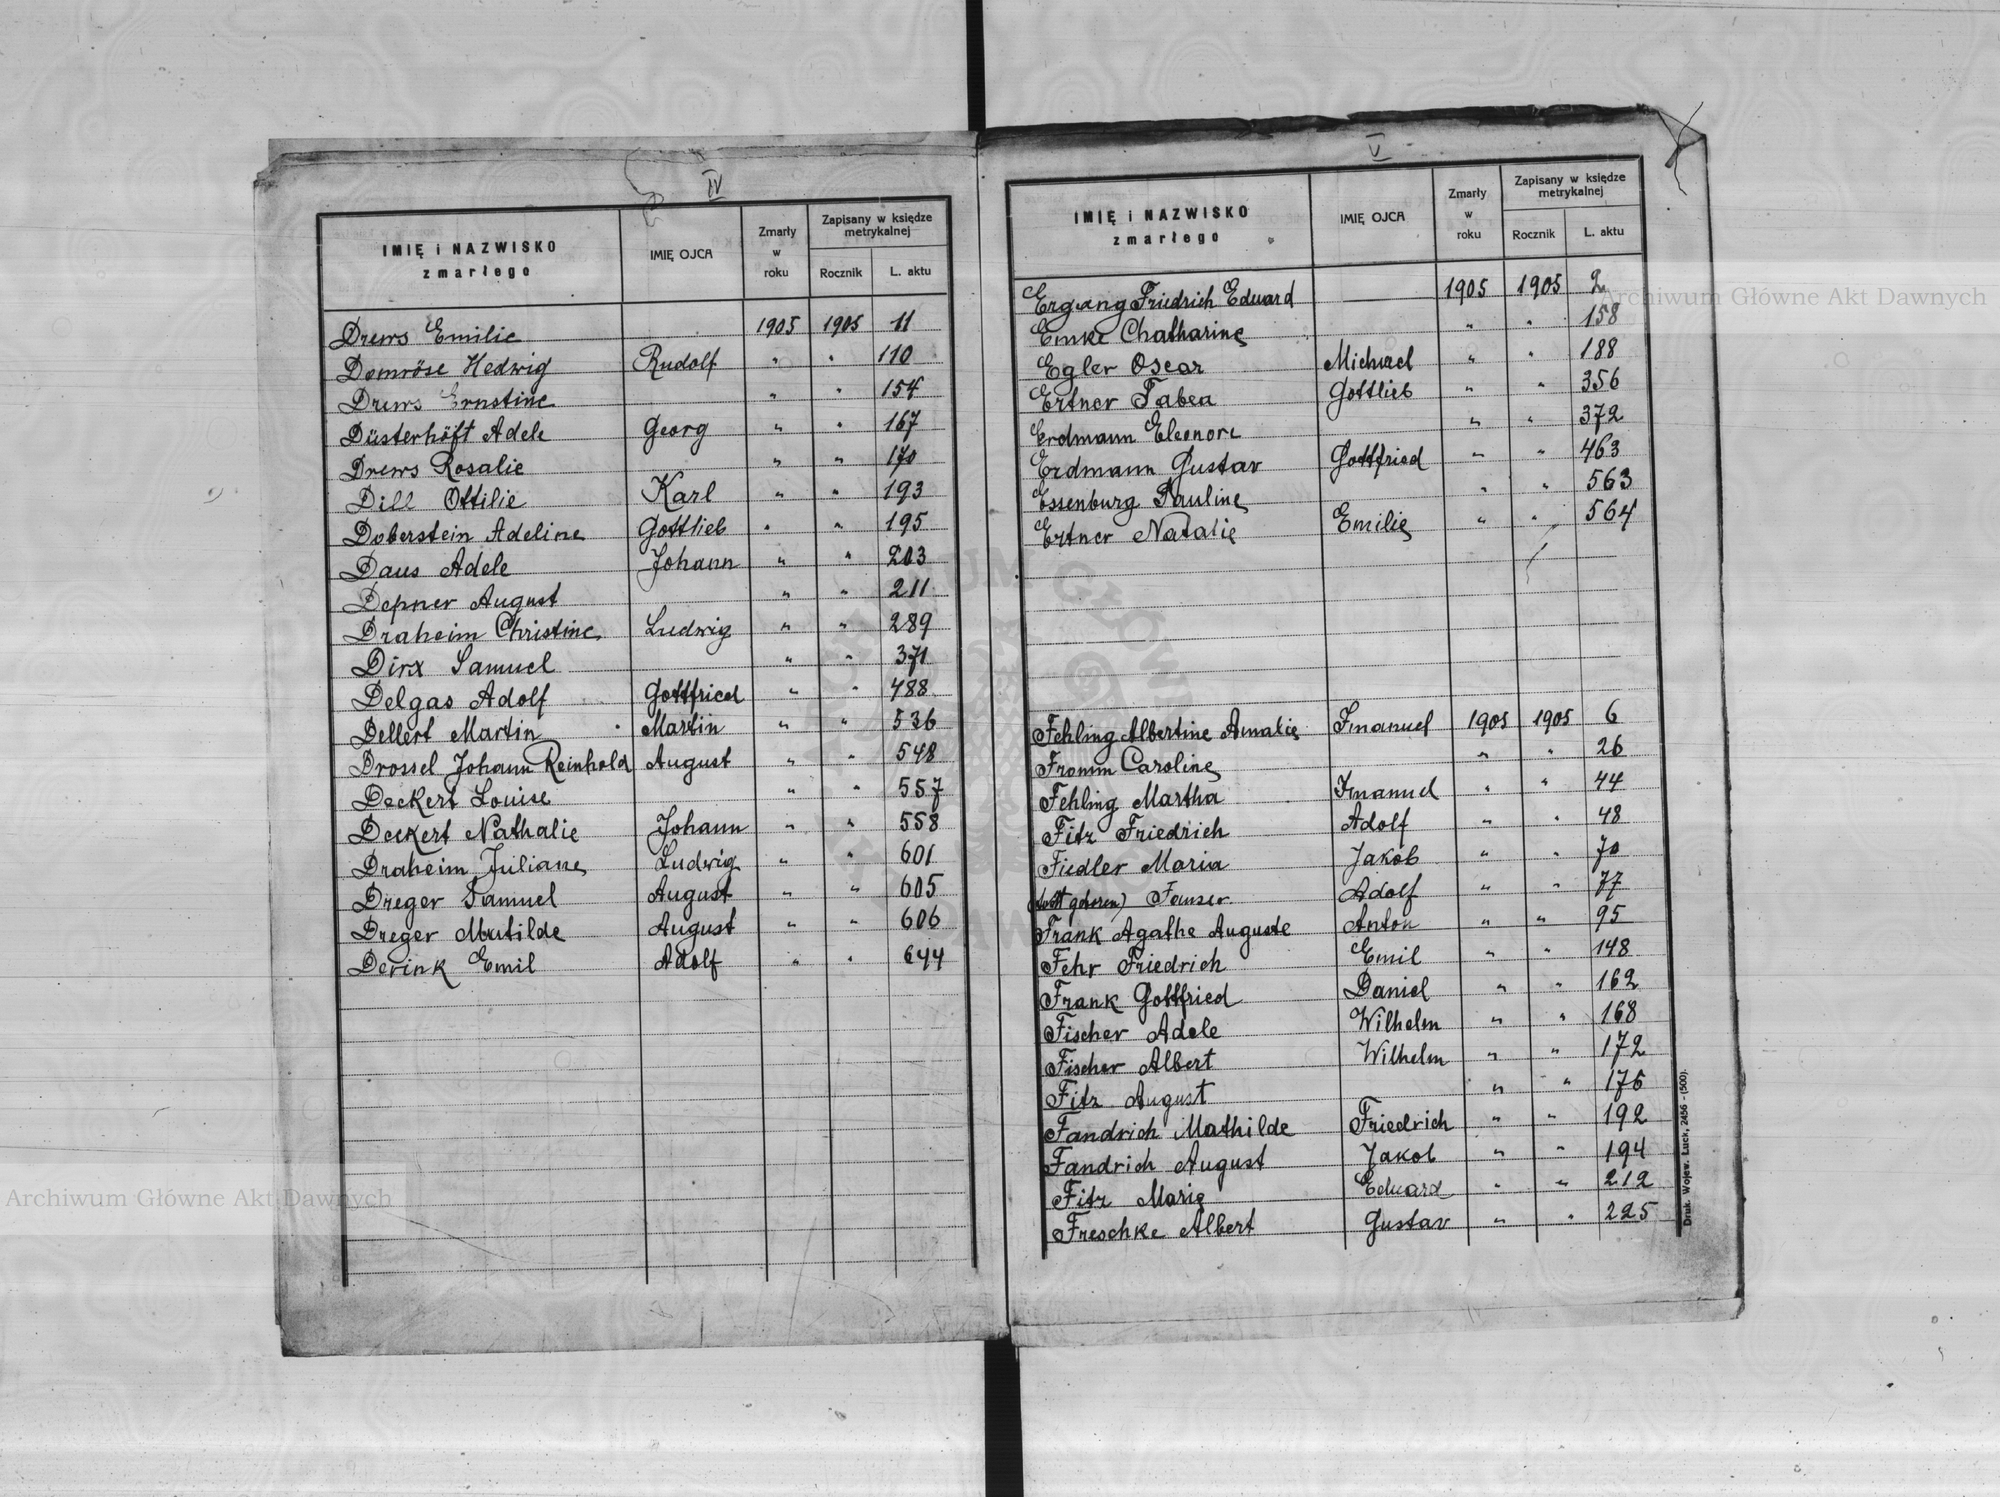 IV
IMIĘ i NAZWISKO zmarłego | IMIĘ OJCA | Zmarły w roku | Zapisany w księdze metrykalnej | Rocznik | L. aktu
Drews Emilie 1905 1905 11
Domröse Hedwig Rudolf " " 110
Drews Ernstine " " 154
Düsterhöft Adele Georg " " 167
Drews Rosalie " " 170
Dill Ottilie Karl " " 193
Doberstein Adeline Gottlieb " " 195
Daus Adele Johann " " 203
Depner August " " 211
Draheim Christine Ludwig " " 289
Dirx Samuel " " 371
Delgas Adolf Gottfried " " 488
Dellert Martin Martin " " 536
Drossel Johann Reinhold August " " 548
Deckert Louise " " 557
Deckert Nathalie Johann " " 558
Draheim Juliane Ludwig " " 601
Dreger Samuel August " " 605
Dreger Matilde August " " 606
Derink Emil Adolf " " 644
V
IMIĘ i NAZWISKO zmarłego | IMIĘ OJCA | Zmarły w roku | Zapisany w księdze metrykalnej | Rocznik | L. aktu
Ergang Friedrich Eduard — 1905 1905 2
Emke Chatharine " " 158
Egler Oscar Michael " " 188
Ertner Tabea Gottlieb " " 356
Erdmann Eleonore " " 372
Erdmann Gustav Gottfried " " 463
Essenburg Pauline " " 563
Ertner Natalie Emilie " " 564
Fehling Albertine Amalie Imanuel 1905 1905 6
Fromm Caroline " " 26
Fehling Martha Imanuel " " 44
Fitz Friedrich Adolf " " 48
Fiedler Maria Jakob " " 70
(tott geboren) Fenser Adolf " " 77
Frank Agathe Auguste Anton " " 95
Fehr Friedrich Emil " " 148
Frank Gottfried Daniel " " 162
Fischer Adele Wilhelm " " 168
Fischer Albert Wilhelm " " 172
Fitz August " " 176
Fandrich Mathilde Friedrich " " 192
Fandrich August Jakob " " 194
Fitz Marie Eduard " " 212
Freschke Albert Gustav " " 225
Druk. Wojew. Łuck, 2456 - (500).
Archiwum Główne Akt Dawnych
Archiwum Główne Akt Dawnych